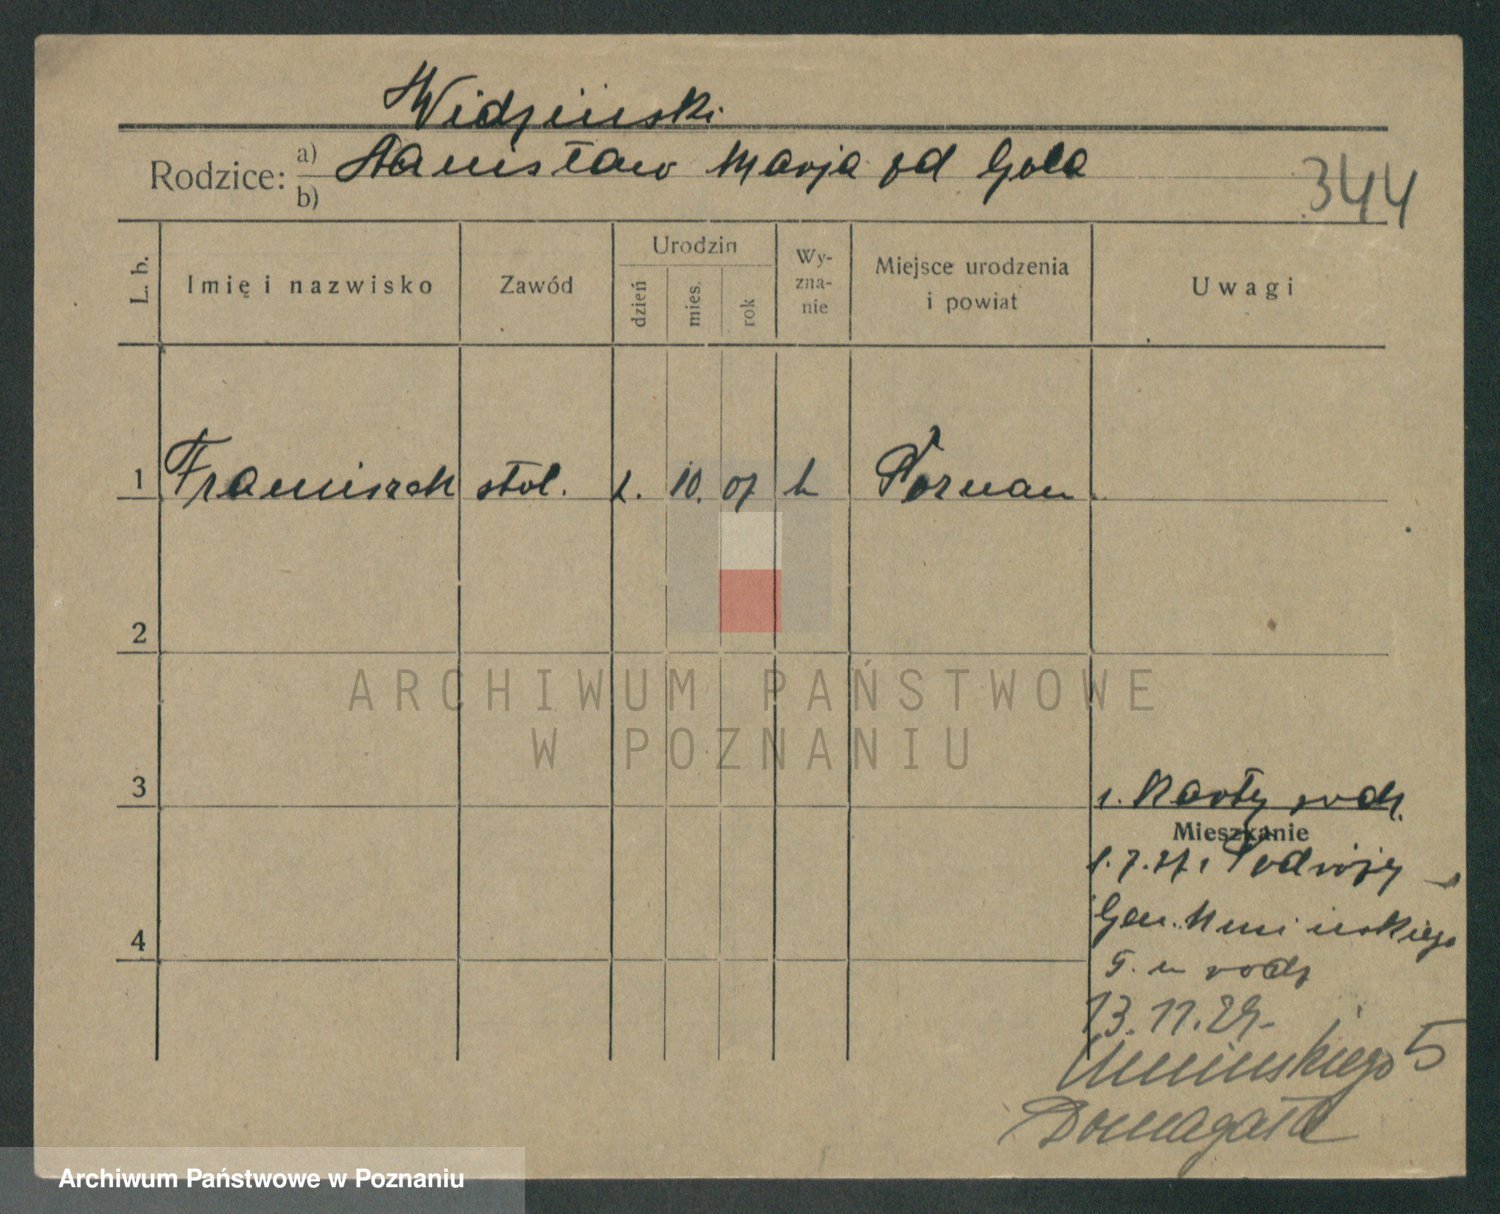 Widziński
Rodzice: a) Stanisław Marja od Gola
b)
344
L. b.
Imię i nazwisko
Zawód
Urodzin
dzień
mies.
rok
Wy-
zna-
nie
Miejsce urodzenia
i powiat
Uwagi
1 Franciszek stol. 1. 10. 07 k Poznan
2
ARCHIWUM PAŃSTWOWE
W POZNANIU
3
z. Karty rodz.
Mieszkanie
1.7.27.
Gen. Umińskiego
5. u rodz
4
13.11.29.
Umińskiego 5
Domagała
Archiwum Państwowe w Poznaniu